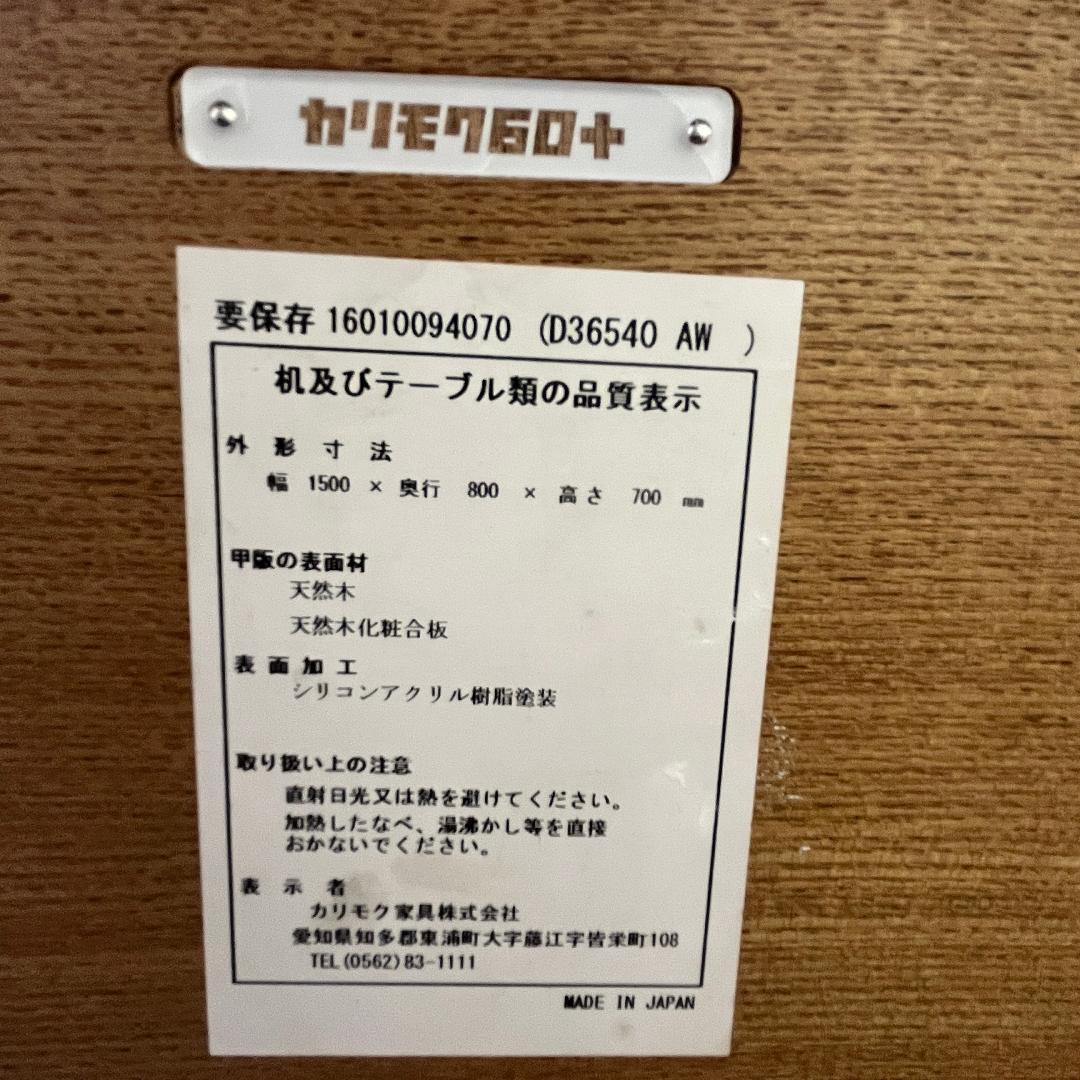 カリモク60+
要保存 16010094070 (D36540 AW )
机及びテーブル類の品質表示
外形寸法
幅 1500 × 奥行 800 × 高さ 700 mm
甲版の表面材
天然木
天然木化粧合板
表面加工
シリコンアクリル樹脂塗装
取り扱い上の注意
直射日光又は熱を避けてください。
加熱したなべ、湯沸かし等を直接
おかないでください。
表示者
カリモク家具株式会社
愛知県知多郡東浦町大字藤江字皆栄町108
TEL(0562)83-1111
MADE IN JAPAN